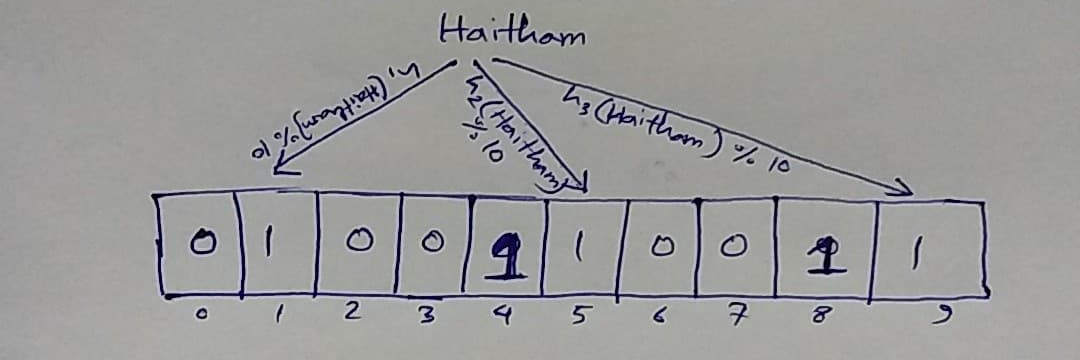 Haitham
h1(Haitham)% 10
h2(Haitham)
% 10
h3(Haitham) % 10
0 1 0 0 1 1 0 0 1 1
0 1 2 3 4 5 6 7 8 9